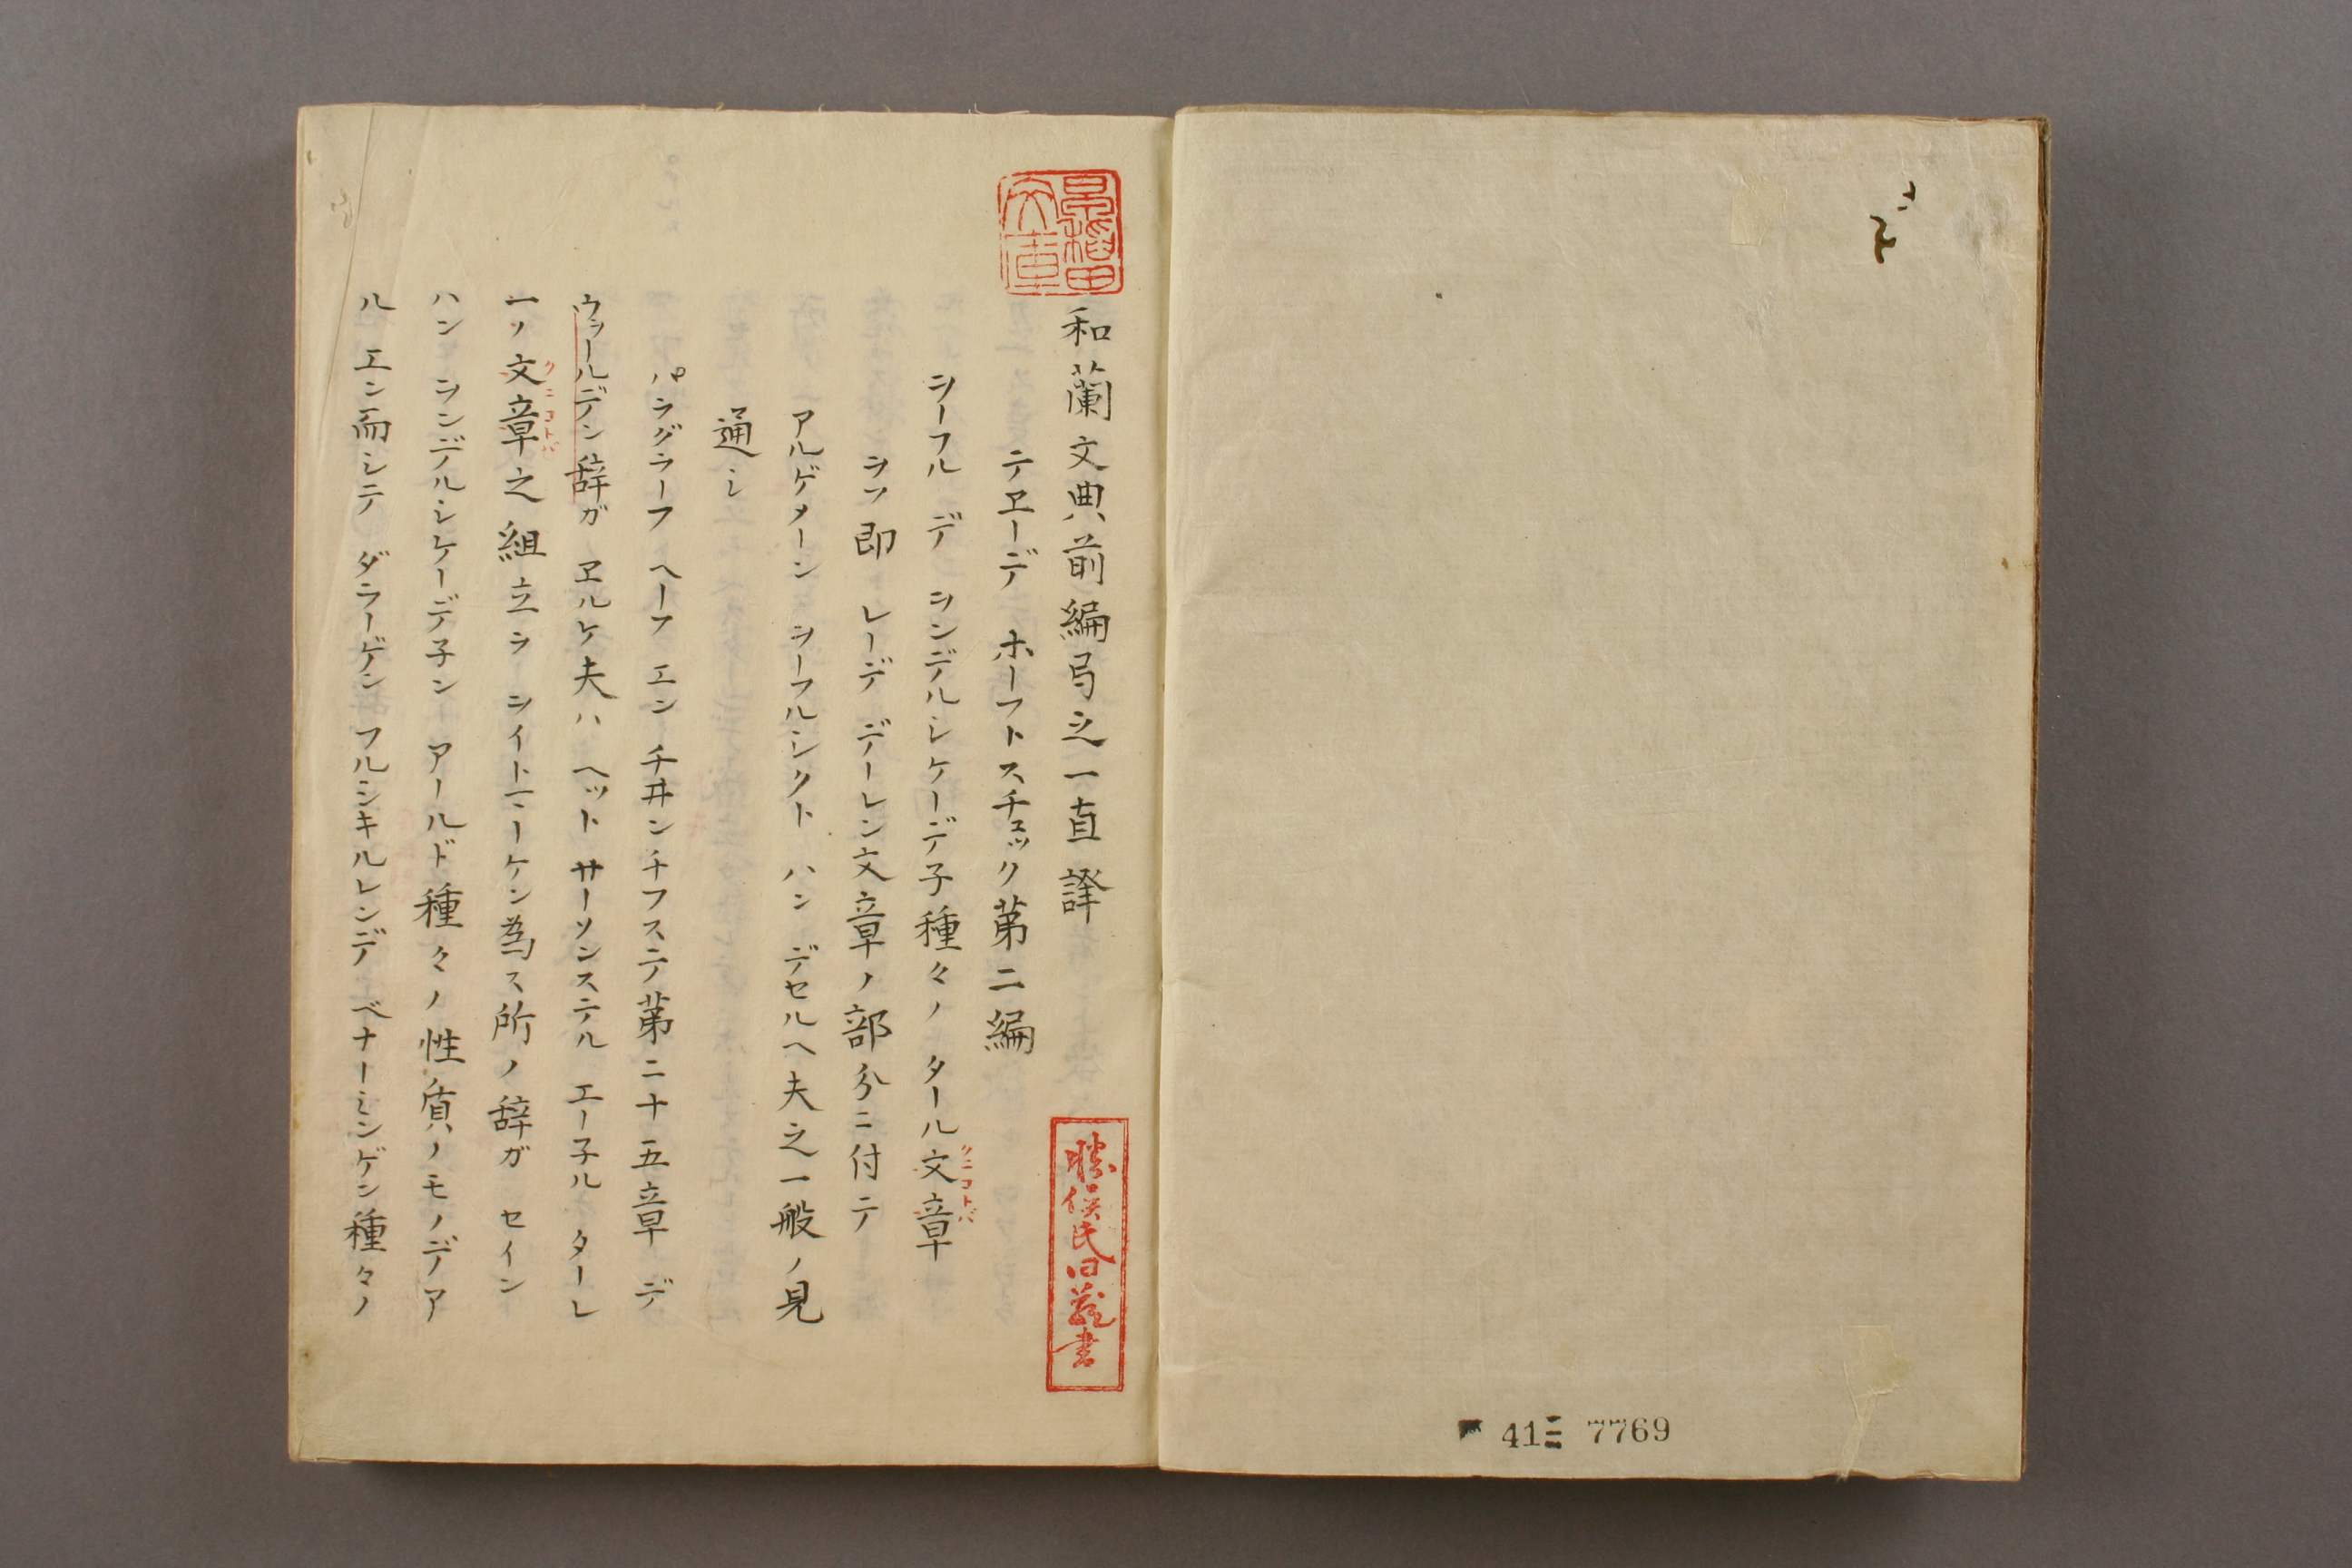 41 7769
和蘭文典前編弓之一直譯
テヱーデ ホーフトスチュック第二編
ヲーフル デ ヲンデルシケーデ子種々ノ タール文章
クニコトバ
ヲフ即 レーデ デーレン文章ノ部分ニ付テ
アルゲメーン ヲーフルシクト ハン デセルヘ夫之一般ノ見
通シ
パラグラーフ ヘーフ エン チヰンチフステ第二十五章 デ
ウヲールデン辞ガ ヱルケ夫ハ ヘット サーソンステル エー子ル ターレ
一ノ文章之組立ヲ ヲイトマーケン為ス所ノ辞ガ セイン
クニコトバ
ハン ヲンデルシケーデ子ン アールド種々ノ性質ノモノデア
ル エン而シテ ダラーゲン フルシキルレンデ ベナーミンゲン種々ノ